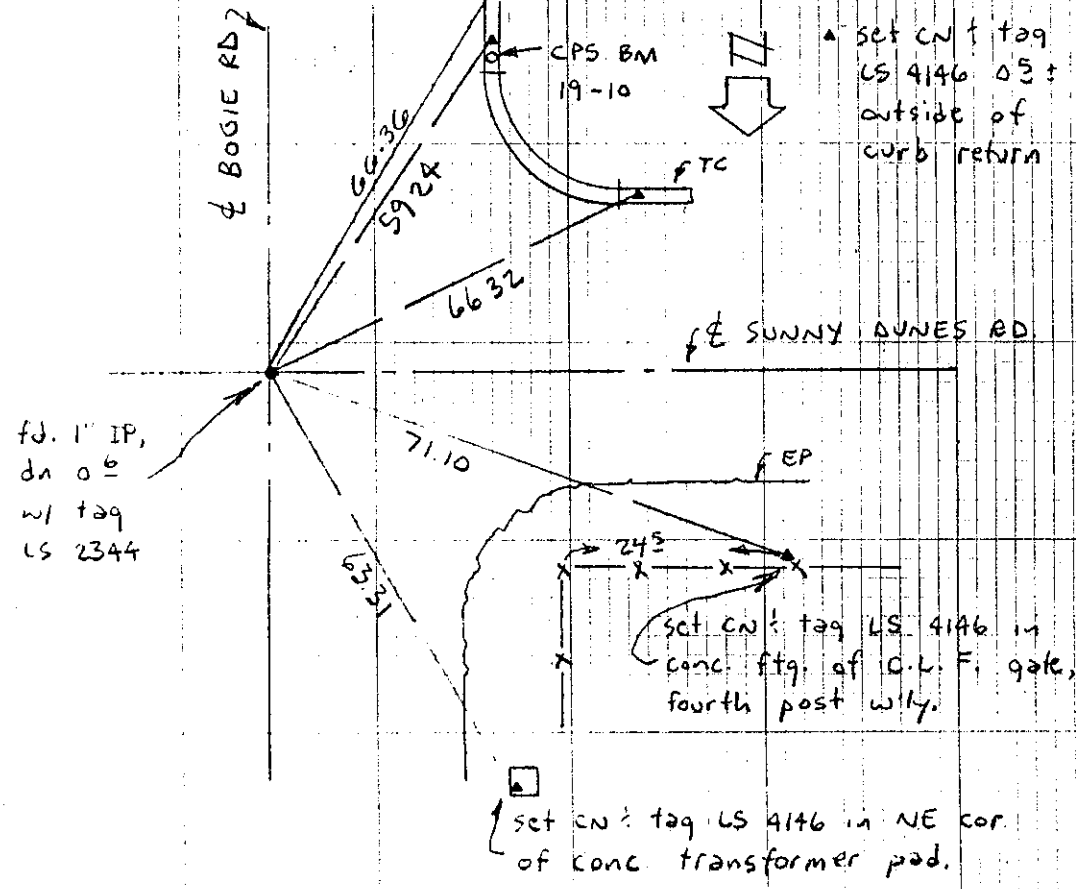 ℄ BOGIE RD
CPS BM
19-10
N
▲ set CN & tag
LS 4146 0⁵ ±
outside of
curb return
66.36
59.24
TC
66.32
℄ SUNNY DUNES RD.
fd. 1" IP,
dn 0⁶
w/ tag
LS 2344
71.10
EP
24⁵
63.31
set CN & tag LS 4146 in
conc. ftg. of C.L.F. gate,
fourth post w'ly.
set CN & tag LS 4146 in NE cor.
of conc. transformer pad.